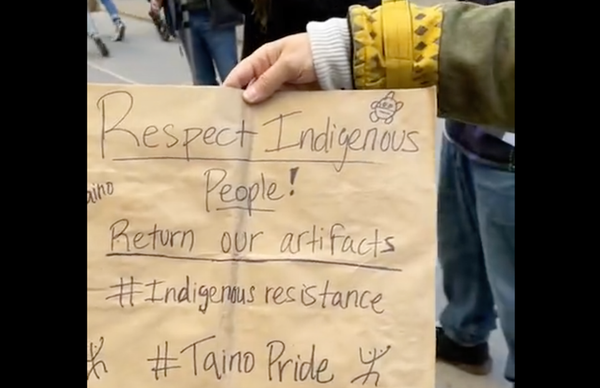 Respect Indigenous
People!
Taino
Return our artifacts
#Indigenous resistance
#Taino Pride